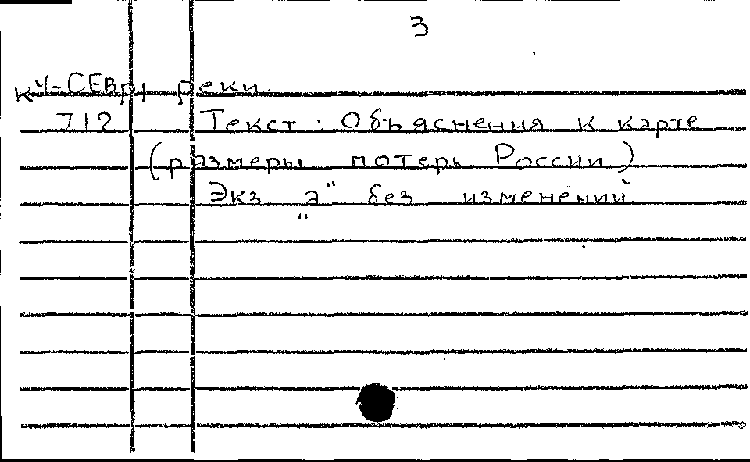 3
КУ-СЕВр реки
712 Текст: Объяснения к карте
(размеры потерь России)
Экз "э" без изменений